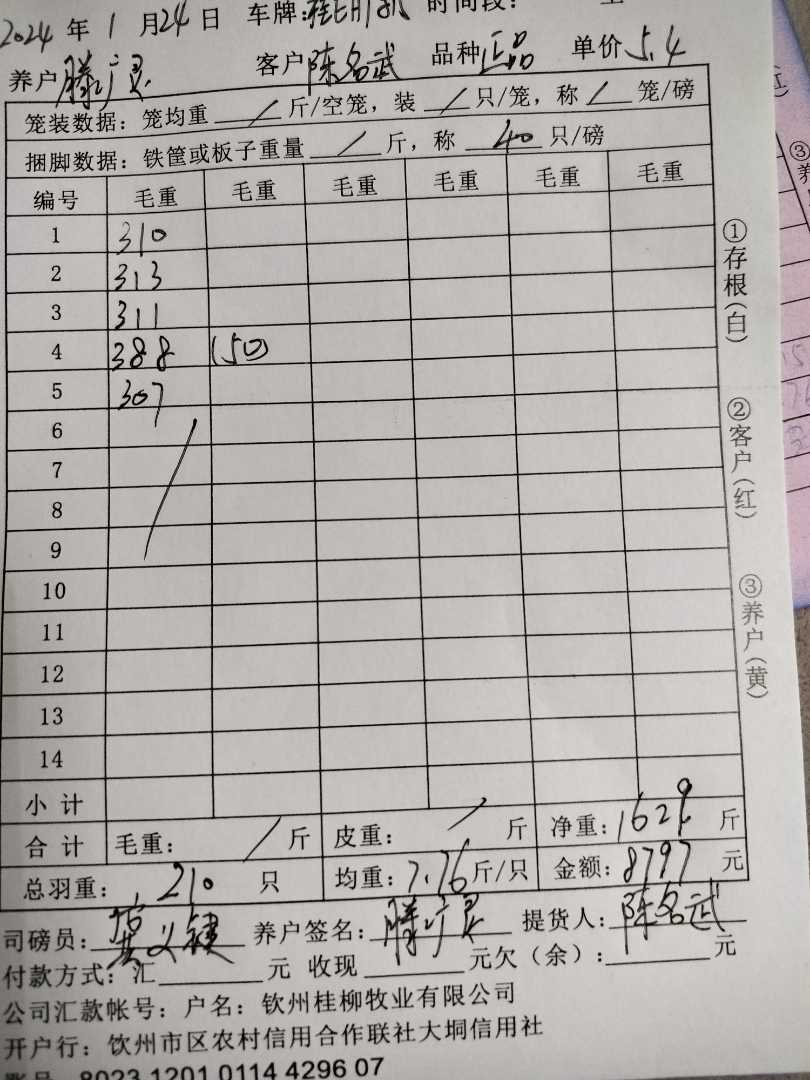 2024 年 1 月 24 日 车牌: 时间段:
养户 滕广灵 客户 陈名武 品种 正品 单价 5.4
笼装数据: 笼均重 / 斤/空笼, 装 / 只/笼, 称 / 笼/磅
捆脚数据: 铁筐或板子重量 / 斤, 称 40 只/磅
编号 毛重 毛重 毛重 毛重 毛重 毛重
1 310
2 313
3 311
4 388 (50)
5 307
6
7
8
9
10
11
12
13
14
小计
合计 毛重: / 斤 皮重: / 斤 净重: 1629 斤
总羽重: 210 只 均重: 7.76 斤/只 金额: 8797 元
司磅员: 养户签名: 滕广灵 提货人: 陈名武
付款方式: 汇 元 收现 元欠(余): 元
公司汇款帐号: 户名: 钦州桂柳牧业有限公司
开户行: 钦州市区农村信用合作联社大垌信用社
账号 8023 1201 0114 4296 07
①存根(白)
②客户(红)
③养户(黄)